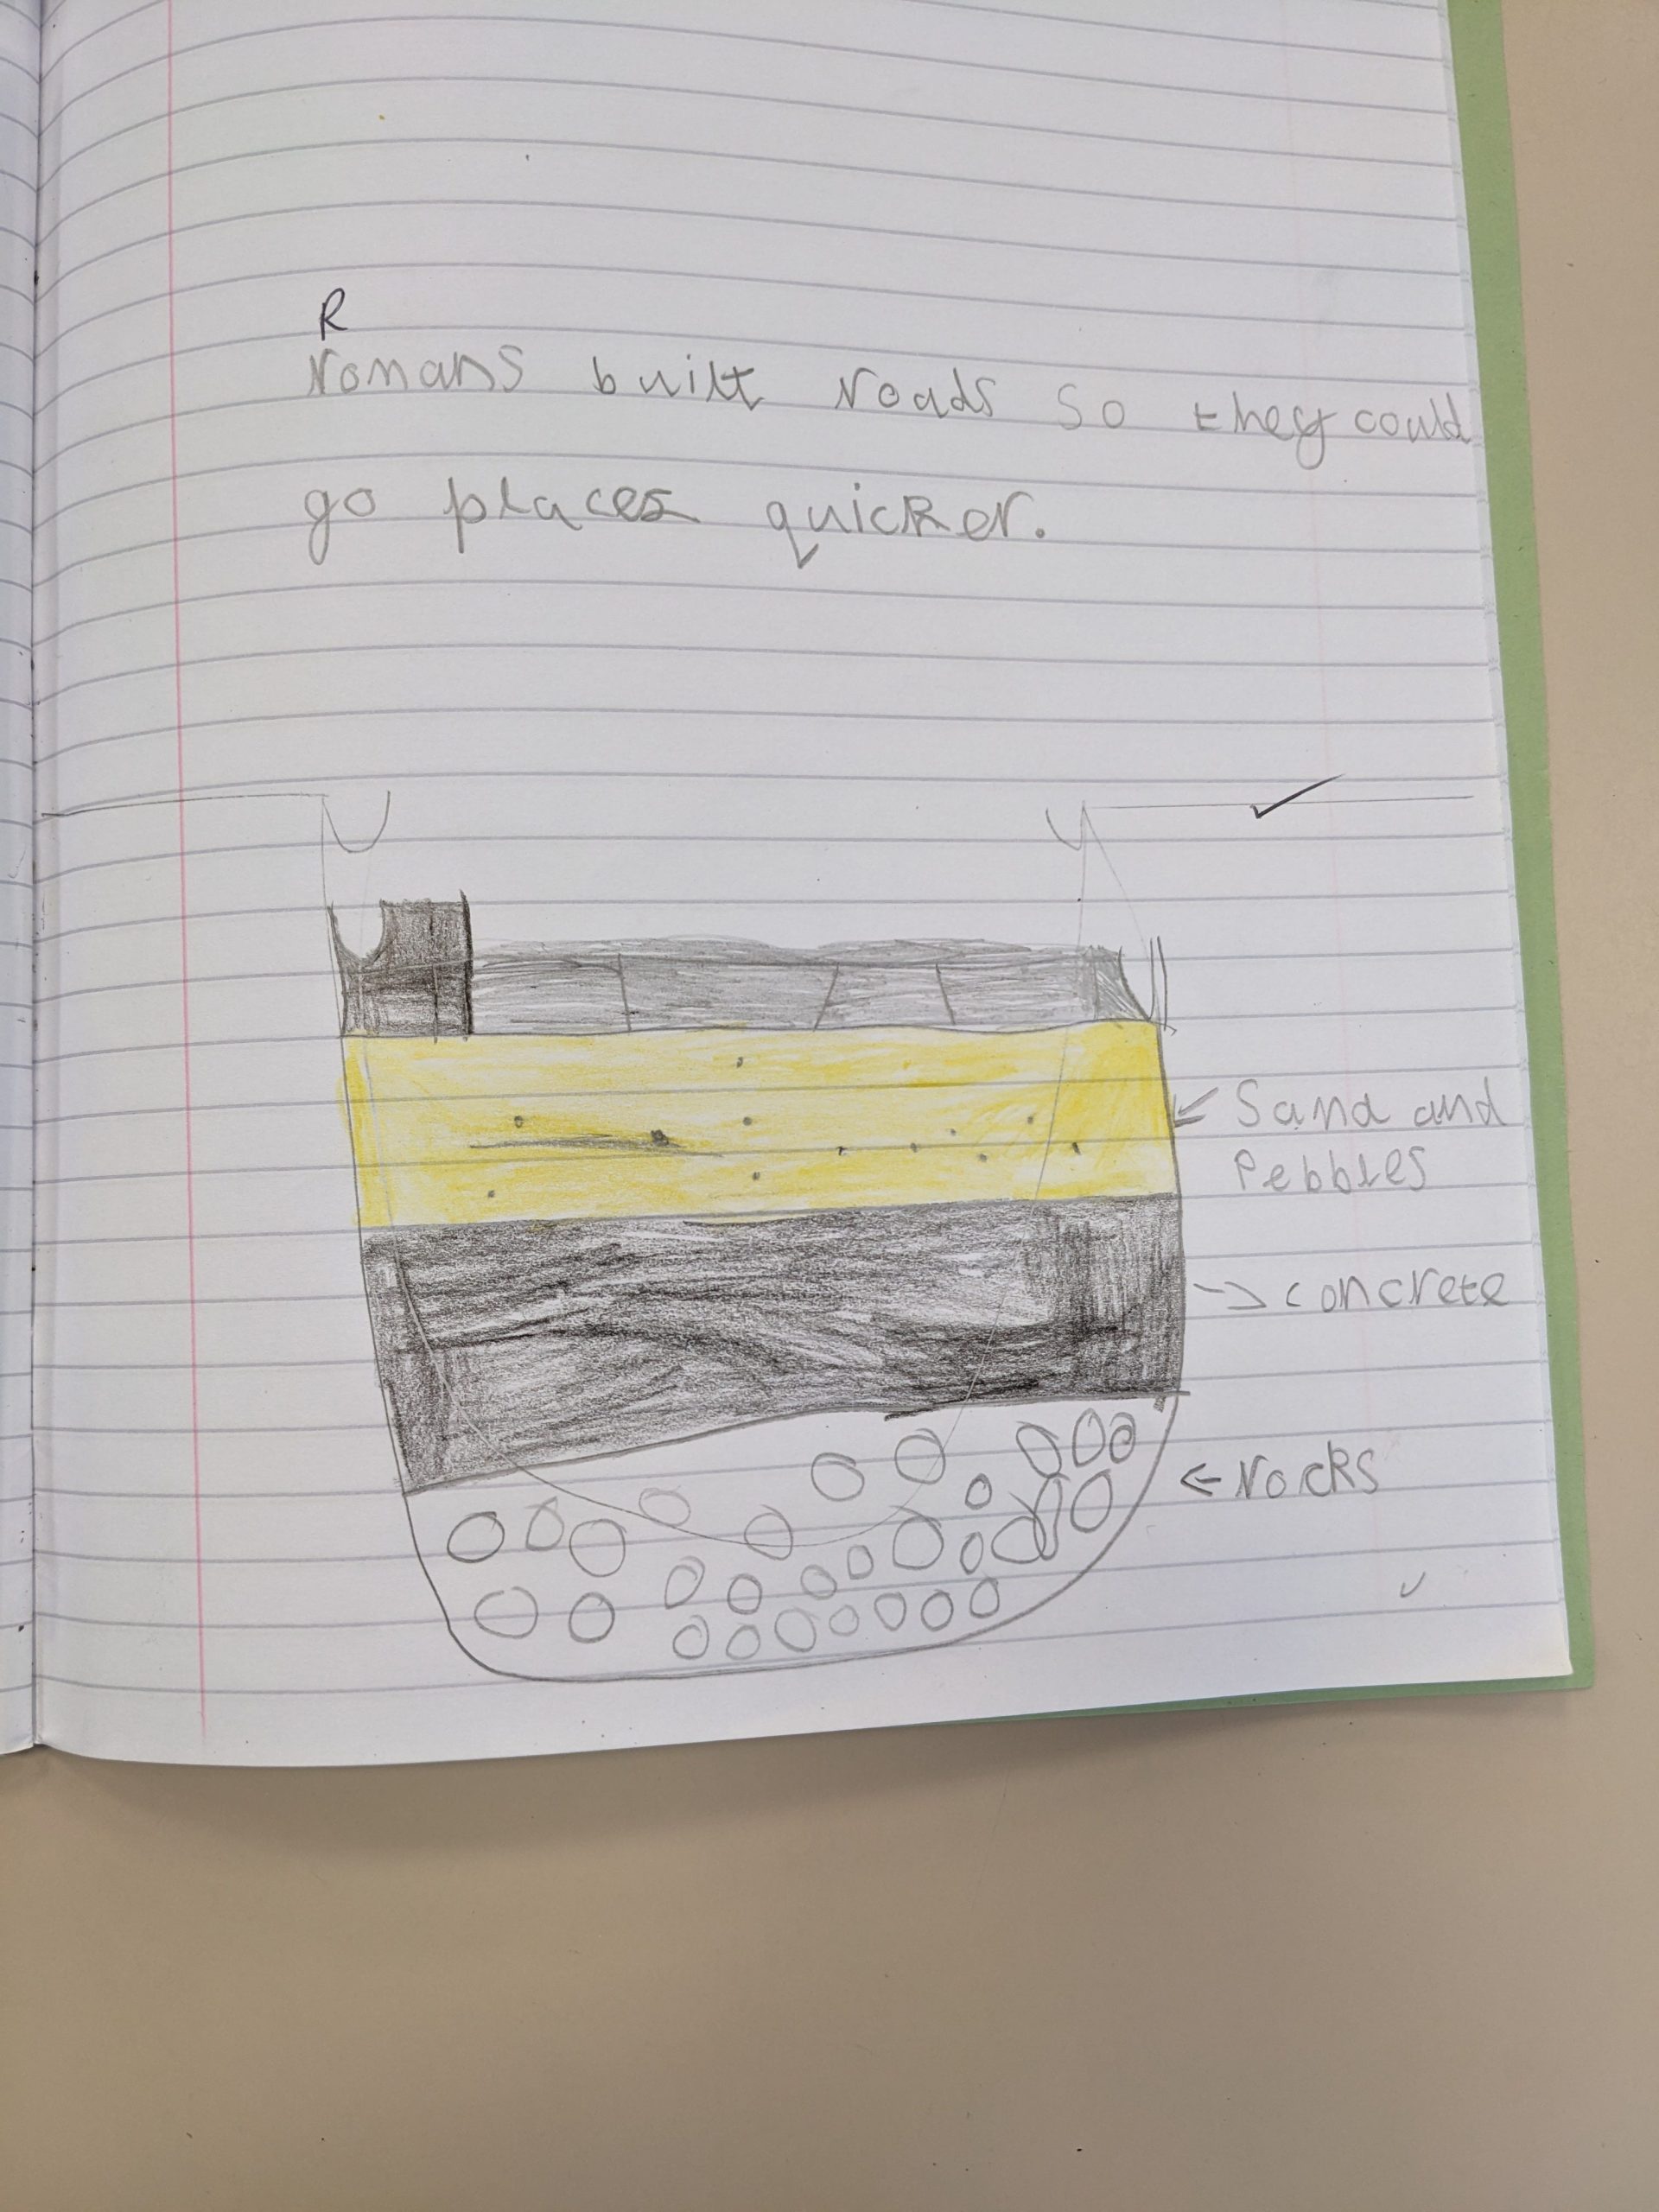 R
romans built roads so they could
go places quicker.
Sand and
Pebbles
concrete
rocks